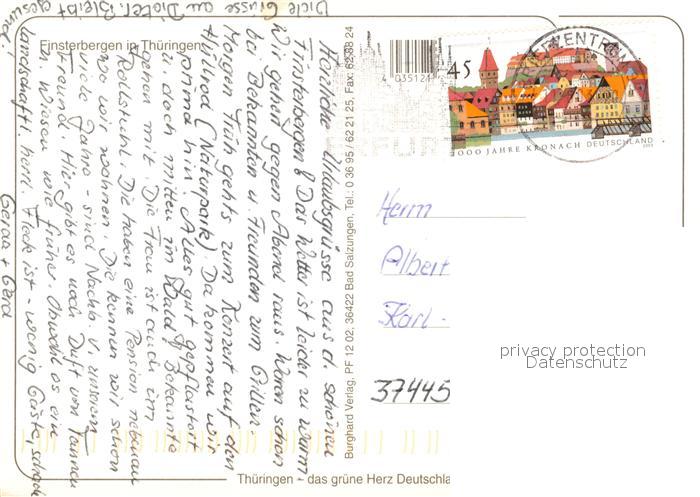 Finsterbergen in Thüringen
Herzliche Urlaubsgrüsse aus d. schönen
Finsterbergen! Das Wetter ist leider zu warm
Wir gehen gegen Abend raus. Waren schon
bei Bekannten u. Freunden zum Grillen.
Morgen Früh gehts zum Konzert auf den
(Naturpark). Da kommen wir
prima hin. Alles gut gepflastert
u. doch mitten im Wald! Bekannte
gehen mit. Die Frau ist auch im
Rollstuhl. Die haben eine Pension nebenan
wo wir wohnen. Die kennen wir schon
viele Jahre - sind Nachb. v. unserem
Freund. Hier gibt es noch Duft von Tannen
u. Wiesen wie früher. Obwohl es ein
landschaftl. herrl. Fleck ist - wenig Gäste, schade
Gerda + Gerd
Viele Grüsse an Dieter. Bleibt gesund.
Burghard Verlag, PF 12 02, 36422 Bad Salzungen, Tel.: 0 36 95 / 62 21 25, Fax: 62 88 24
035124
45
1000 JAHRE KRONACH DEUTSCHLAND
2003
BRIEFZENTRUM
ERFURT
Herrn
Albert
Karl-
37445
privacy protection
Datenschutz
Thüringen - das grüne Herz Deutschla